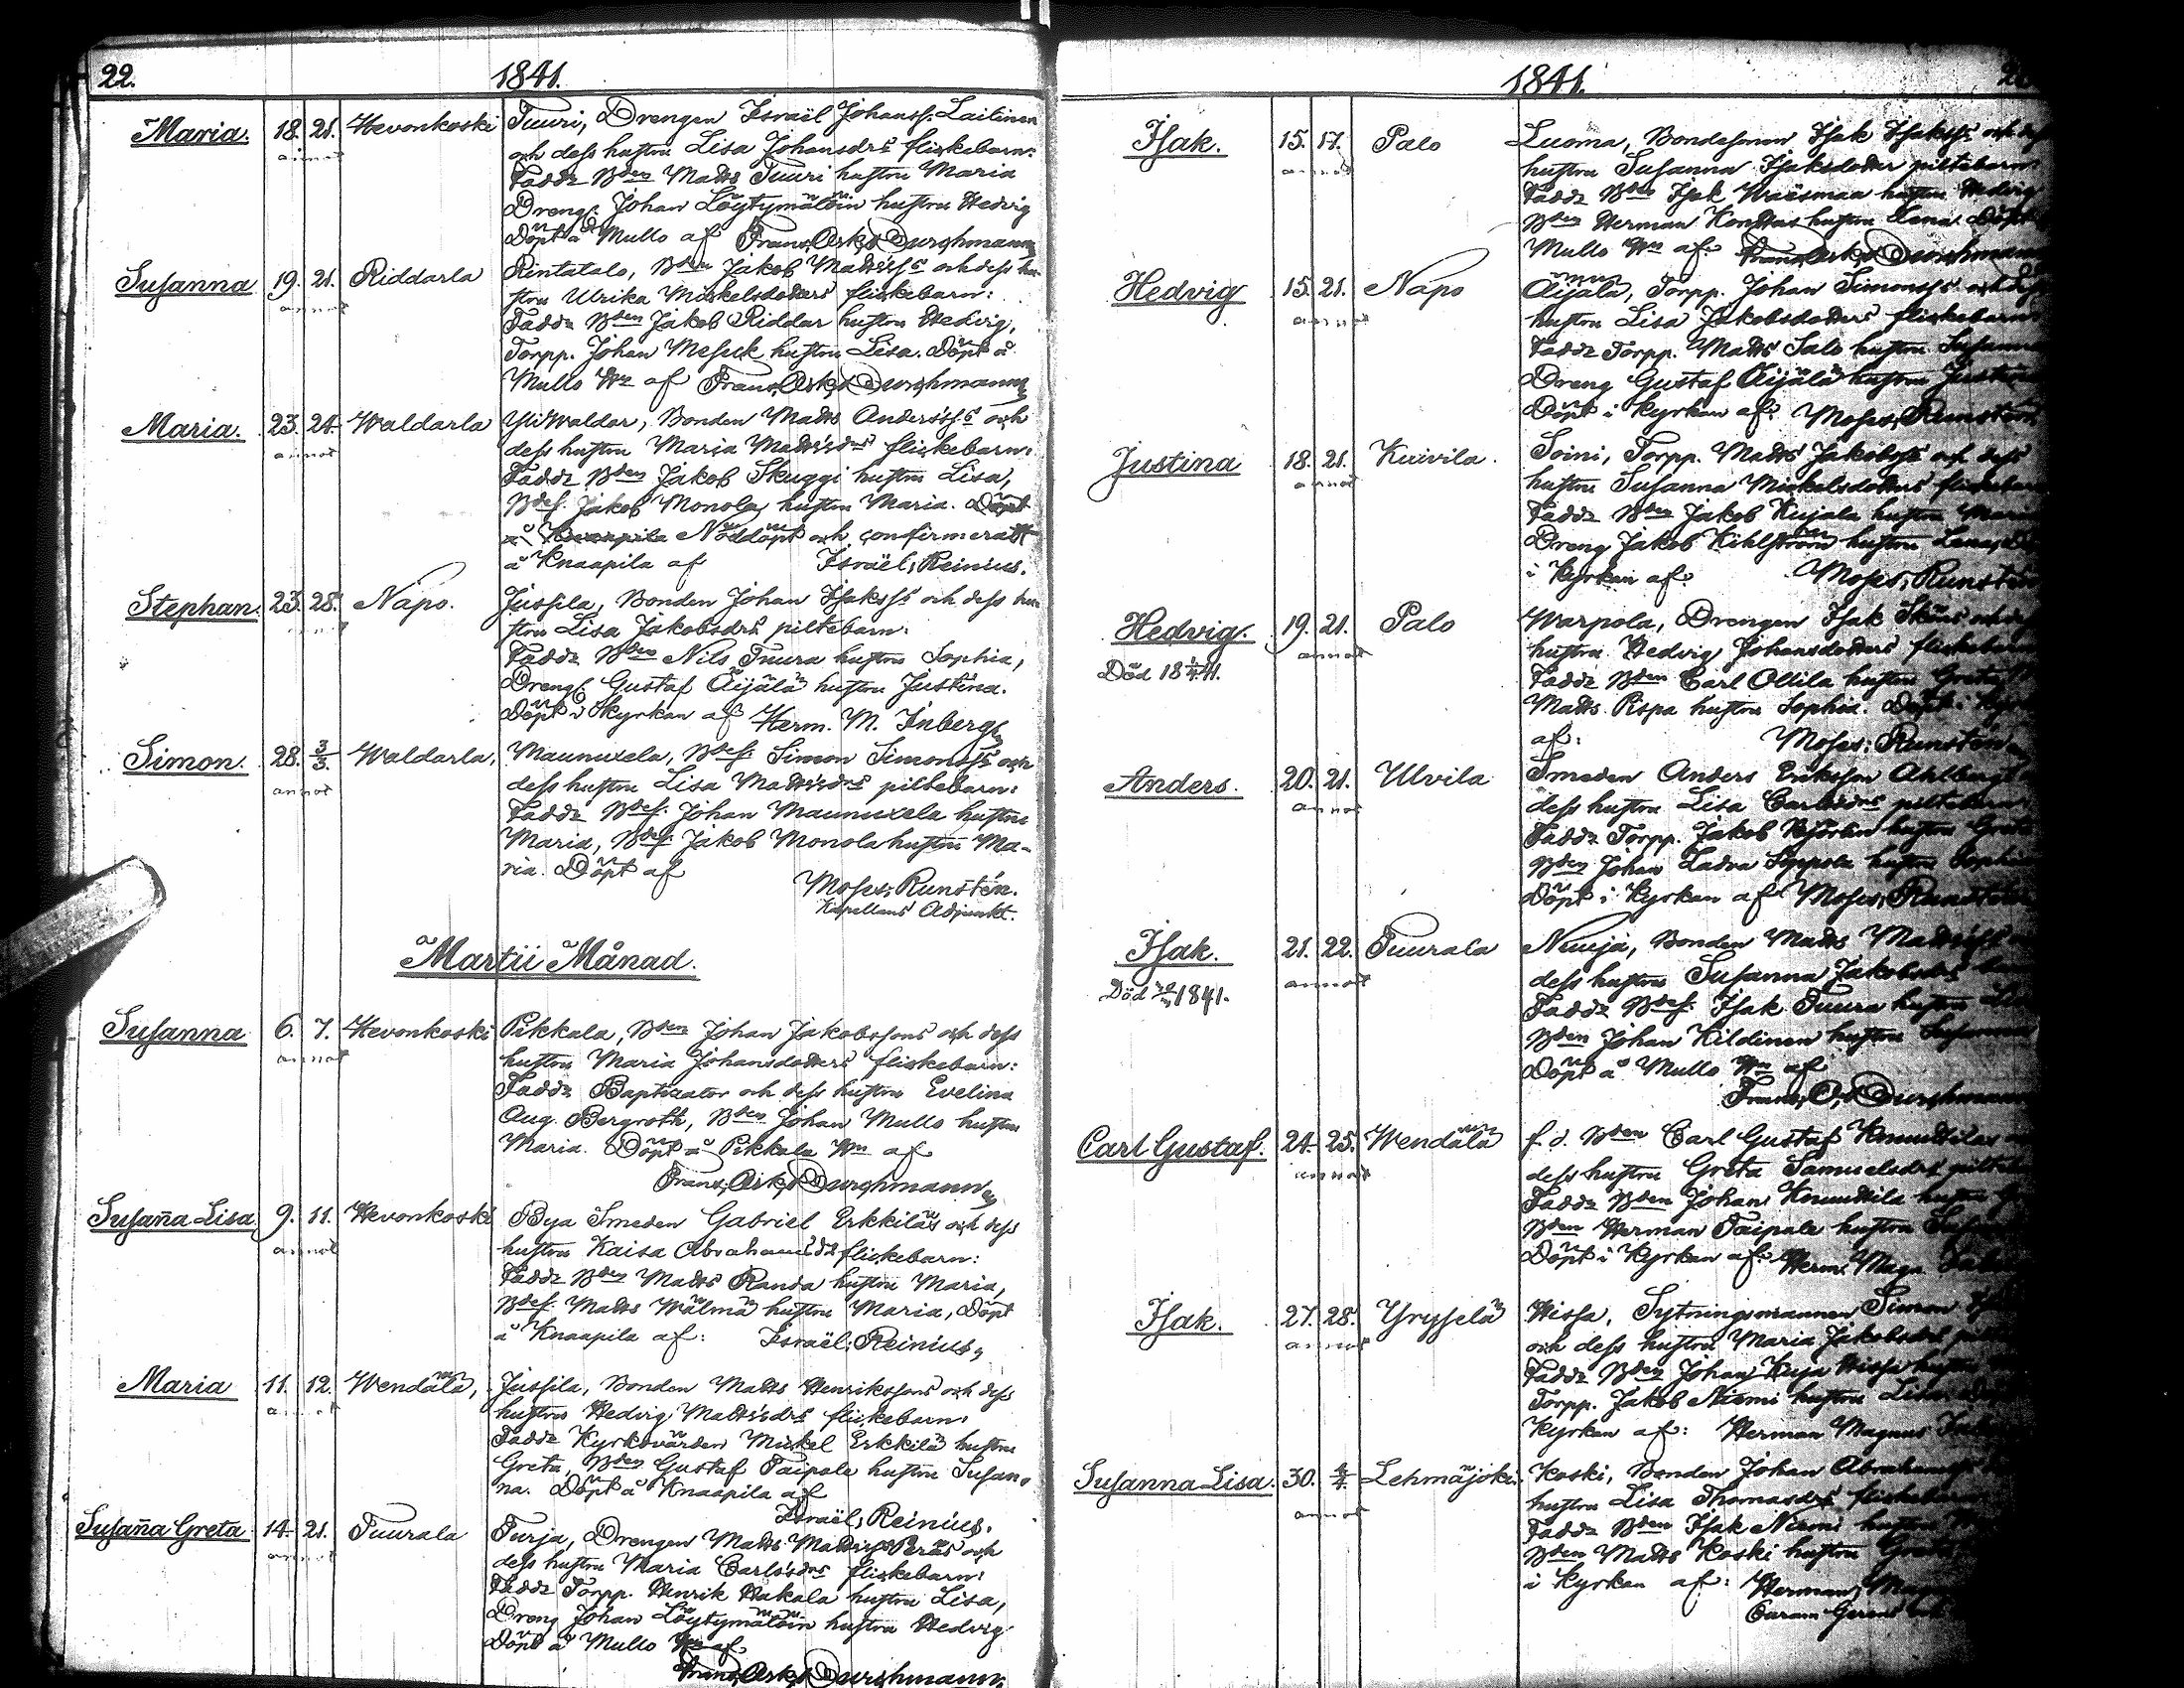 22.
1841.
Maria. 18. 21. Hevonkoski Tuuri, Drengen Israël Johanss: Laitinen
annot och dess hustru Lisa Johansdrs flickebarn:
Fadd: Bden Matts Tuuri hustru Maria
Drengs. Johan Löytymäläin hustru Hedvig
Döpt å Mullo af Frans Osk. Durchmann
Susanna 19. 21. Riddarla Rintatalo, Bden Jakob Mattsss och dess hu-
annot stru Ulrika Mickelsdotters flickebarn:
Fadd: Bden Jakob Riddar hustru Hedvig,
Torpp. Johan Messuk hustru Lisa. Döpt å
Mullo Hn af Frans Osk. Durchmann
Maria. 23. 24. Waldarla YliWaldar, Bonden Matts Andersss och
annot dess hustru Maria Mattsdrs flickebarn:
Fadd: Bden Jakob Skuggi hustru Lisa,
Bdes. Jakob Monola hustru Maria. Döpt
å Knaapila Nöddöpt och confirmeradt
å Knaapila af Israël Reinius.
Stephan. 23. 28. Napo. Jussila, Bonden Johan Isaksss och dess hu-
annot stru Lisa Jakobsdrs piltebarn:
Fadd: Bden Nils Tuura hustru Sophia,
Drengs. Gustaf Äijälä hustru Justina.
Döpt i Kyrkan af Herm. M. Inberg
Simon. 28. 3/3. Waldarla, Maunuxela, Bdes. Simon Simonsss och
annot dess hustru Lisa Mattsdrs piltebarn:
Fadd: Bdes. Johan Maunuxela hustru
Maria, Bdes. Jakob Monola hustru Ma-
ria. Döpt af
Moses: Runstén.
Kapellans Adjunkt.
Martii Månad.
Susanna 6. 7. Hevonkoski Pikkala, Bden Johan Jakobssons och dess
annot hustru Maria Johansdotters flickebarn:
Fadd: Baptizator och dess hustru Evelina
Aug. Bergroth, Bden Johan Mullo hustru
Maria. Döpt å Pikkala Hn af
Frans Osk. Durchmann
Susaña Lisa 9. 11. Hevonkoski Bya Smeden Gabriel Erkkiläs och dess
annot hustru Kaisa Abrahamsdr flickebarn:
Fadd: Bden Matts Randa hustru Maria,
Bdes. Matts Wälmä hustru Maria, Döpt
å Knaapila af: Israël: Reinius,
Maria 11. 12. Wendälä, Jussila, Bonden Matts Henrikssons och dess
annot hustru Hedvig Mattsdrs flickebarn:
Fadd: Kyrkovärden Mickel Erkkilä hustru
Greta, Bden Gustaf Taipale hustru Susan-
na. Döpt å Knaapila af
Israël: Reinius.
Susaña Greta 14. 21. Tuurala Turja, Drengen Matts Mattsss Peräs och
annot dess hustru Maria Carlsdrs flickebarn:
Fadd: Torpp. Henrik Hakala hustru Lisa,
Dreng Johan Löytymäläin hustru Hedvig
Döpt å Mullo Hn af
Frans Osk. Durchmann.
1841.
Isak. 15. 17. Palo Luoma, Bondesonen Isak Isaksss och
annot hustru Susanna Isaksdotter piltebarn:
Fadd: Bden Isak Wäösmaa hustru Hedvig
Bden Herman Konttas hustru Lena. Döpt
Mullo Hn af: Frans Osk. Durchmann
Hedvig 15. 21. Napo Äijälä, Torpp. Johan Simonsss och
annot hustru Lisa Jakobsdotters flickebarn
Fadd: Torpp. Matts Salo hustru Susanna
Dreng Gustaf Äijälä hustru Justina
Döpt i kyrkan af: Moses: Runstén
Justina 18. 21. Kuivila. Soini, Torpp. Matts Jakobsss och dess
annot hustru Susanna Mickelsdotters
Fadd: Bden Jakob Kujala hustru Maria
Dreng Jakob Kihlström hustru Lena,
i Kyrkan af: Moses: Runstén
Hedvig. 19. 21. Palo Warpola, Drengen Isak Sköns
annot hustru Hedvig Johansdotters
Död 18 4/4 41. Fadd: Bden Carl Ollila hustru Greta
Matts Pispa hustru Sophia. Döpt i
af: Moses: Runstén
Anders. 20. 21. Ulvila Smeden Anders Eriksson Ahlberg
annot dess hustru Lisa Carlsdrs piltebarn
Fadd: Torpp. Jakob hustru Greta
Bden Johan Ladva Seppola hustru Sophia
Döpt i Kyrkan af Moses: Runstén
Isak. 21. 22. Tuurala Nuuja, Bonden Matts Mattsss
annot dess hustru Susanna Jakobsdrs
Död 1841. Fadd: Bdes. Isak Tuura hustru
Bden Johan Kildinen hustru Susanna
Döpt å Mullo Hn af
Frans O. Durchmann
Carl Gustaf. 24. 25. Wendälä f. d. Bden Carl Gustaf Knuuttilas
annot dess hustru Greta Samuelsdrs
Fadd: Bden Johan Knuuttila hustru
Bden Herman Taipale hustru
Döpt i Kyrkan af: Herm. Magn.
Isak. 27. 28. Yrysselä Hissa, Sytningsmannen Simon
annot och dess hustru Maria Jakobsdrs
Fadd: Bden Johan Kuja Hissa hustru
Torpp. Jakob Niemi hustru Lisa.
Kyrkan af: Herman Magnus
Susanna Lisa. 30. 4/4. Lehmäjoki. Koski, Bonden Johan
annot hustru Lisa Thomasdrs flickebarn
Fadd: Bden Isak Niemi hustru
Bden Matts Koski hustru
i kyrkan af: Herman